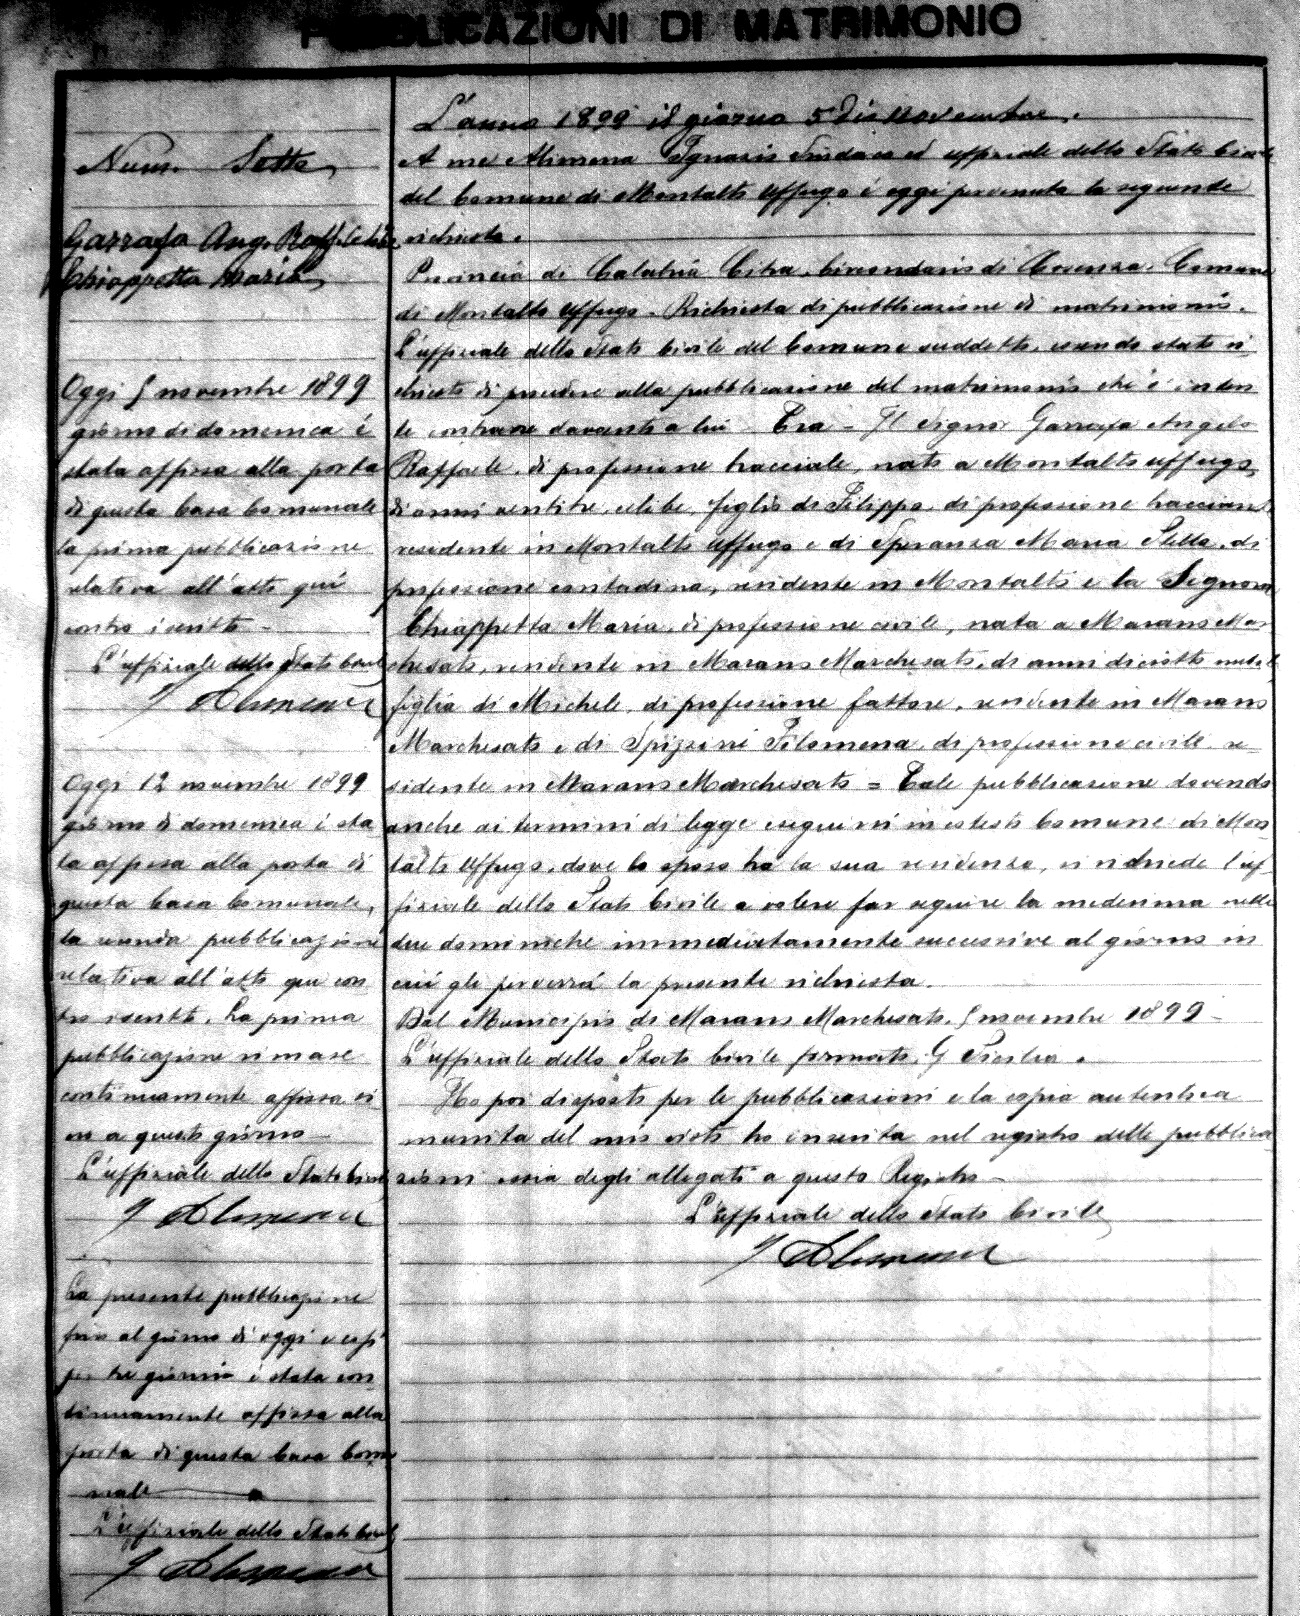 PUBBLICAZIONI DI MATRIMONIO
Num. Sette
Garrafa Ang. Raffaele
Chiappetta Maria
Oggi 5 novembre 1899
giorno di domenica è
stata affissa alla porta
di questa Casa Comunale
la prima pubblicazione
relativa all'atto qui
contro iscritto -
L'uffiziale dello Stato Civile
I Alimena
Oggi 12 novembre 1899
giorno di domenica è sta
ta affissa alla porta di
questa Casa Comunale,
la seconda pubblicazione
relativa all'atto qui con
tro iscritto. La prima
pubblicazione rimase
continuamente affissa si
no a questo giorno -
L'uffiziale dello Stato Civile
I Alimena
La presente pubblicazione
fino al giorno di oggi e cioè
per tre giorni è stata con
tinuamente affissa alla
porta di questa Casa Comu
nale
L'uffiziale dello Stato Civile
I Alimena
L'anno 1899 il giorno 5 di novembre.
A me Alimena Ignazio Sindaco ed uffiziale dello Stato Civile
del Comune di Montalto Uffugo è oggi pervenuta la seguente
richiesta.
Provincia di Calabria Citra. Circondario di Cosenza. Comune
di Montalto Uffugo - Richiesta di pubblicazione di matrimonio.
L'uffiziale dello Stato Civile del Comune suddetto, essendo stato ri
chiesto di procedere alla pubblicazione del matrimonio che è inten
te contrarre davanti a lui Tra - Il Signor Garrafa Angelo
Raffaele, di professione bracciale, nato a Montalto Uffugo,
di anni ventitre, celibe, figlio di Filippo, di professione bracciante
residente in Montalto Uffugo e di Speranza Maria Stella, di
professione contadina, residente in Montalto e la Signora
Chiappetta Maria, di professione civile, nata a Marano Mar
chesato, residente in Marano Marchesato, di anni diciotto nubile
figlia di Michele, di professione fattore, residente in Marano
Marchesato e di Spizzini Filomena, di professione civile re
sidente in Marano Marchesato = Tale pubblicazione dovendo
anche ai termini di legge eseguirsi in cotesto Comune di Mon
talto Uffugo, dove lo sposo ha la sua residenza, si richiede l'uf
fiziale dello Stato Civile a volere far seguire la medesima nelle
due domeniche immediatamente successive al giorno in
cui gli perverrà la presente richiesta.
Dal Municipio di Marano Marchesato, 5 novembre 1899 -
L'uffiziale dello Stato Civile firmato: G Sicilia.
Ho poi disposto per le pubblicazioni e la copia autentica
munita del mio visto ho inserita nel registro delle pubblica
zioni ossia degli allegati a questo Registro -
L'uffiziale dello Stato Civile
I Alimena